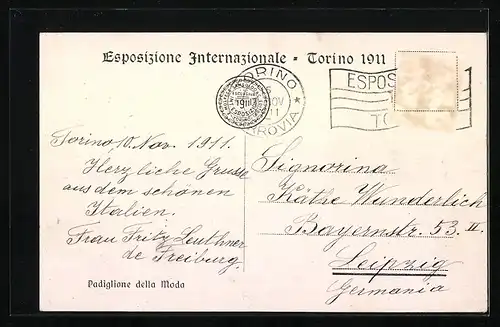 Esposizione Internazionale - Torino 1911
TORINO
NOV
11
FERROVIA
1911
ESPOS
TO
Torino 10. Nov. 1911.
Herzliche Grusse
aus dem schönen
Italien.
Frau Fritz Leuthner
de Freiburg.
Padiglione della Moda
Signorina
Käthe Wunderlich
Bayernstr. 53. II.
Leipzig
Germania